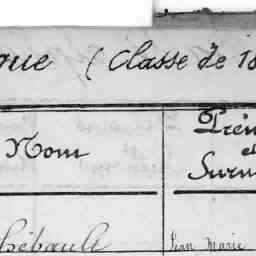 que (Classe de 18
Nom
Prén
et
Surn
hébault
Jean Marie